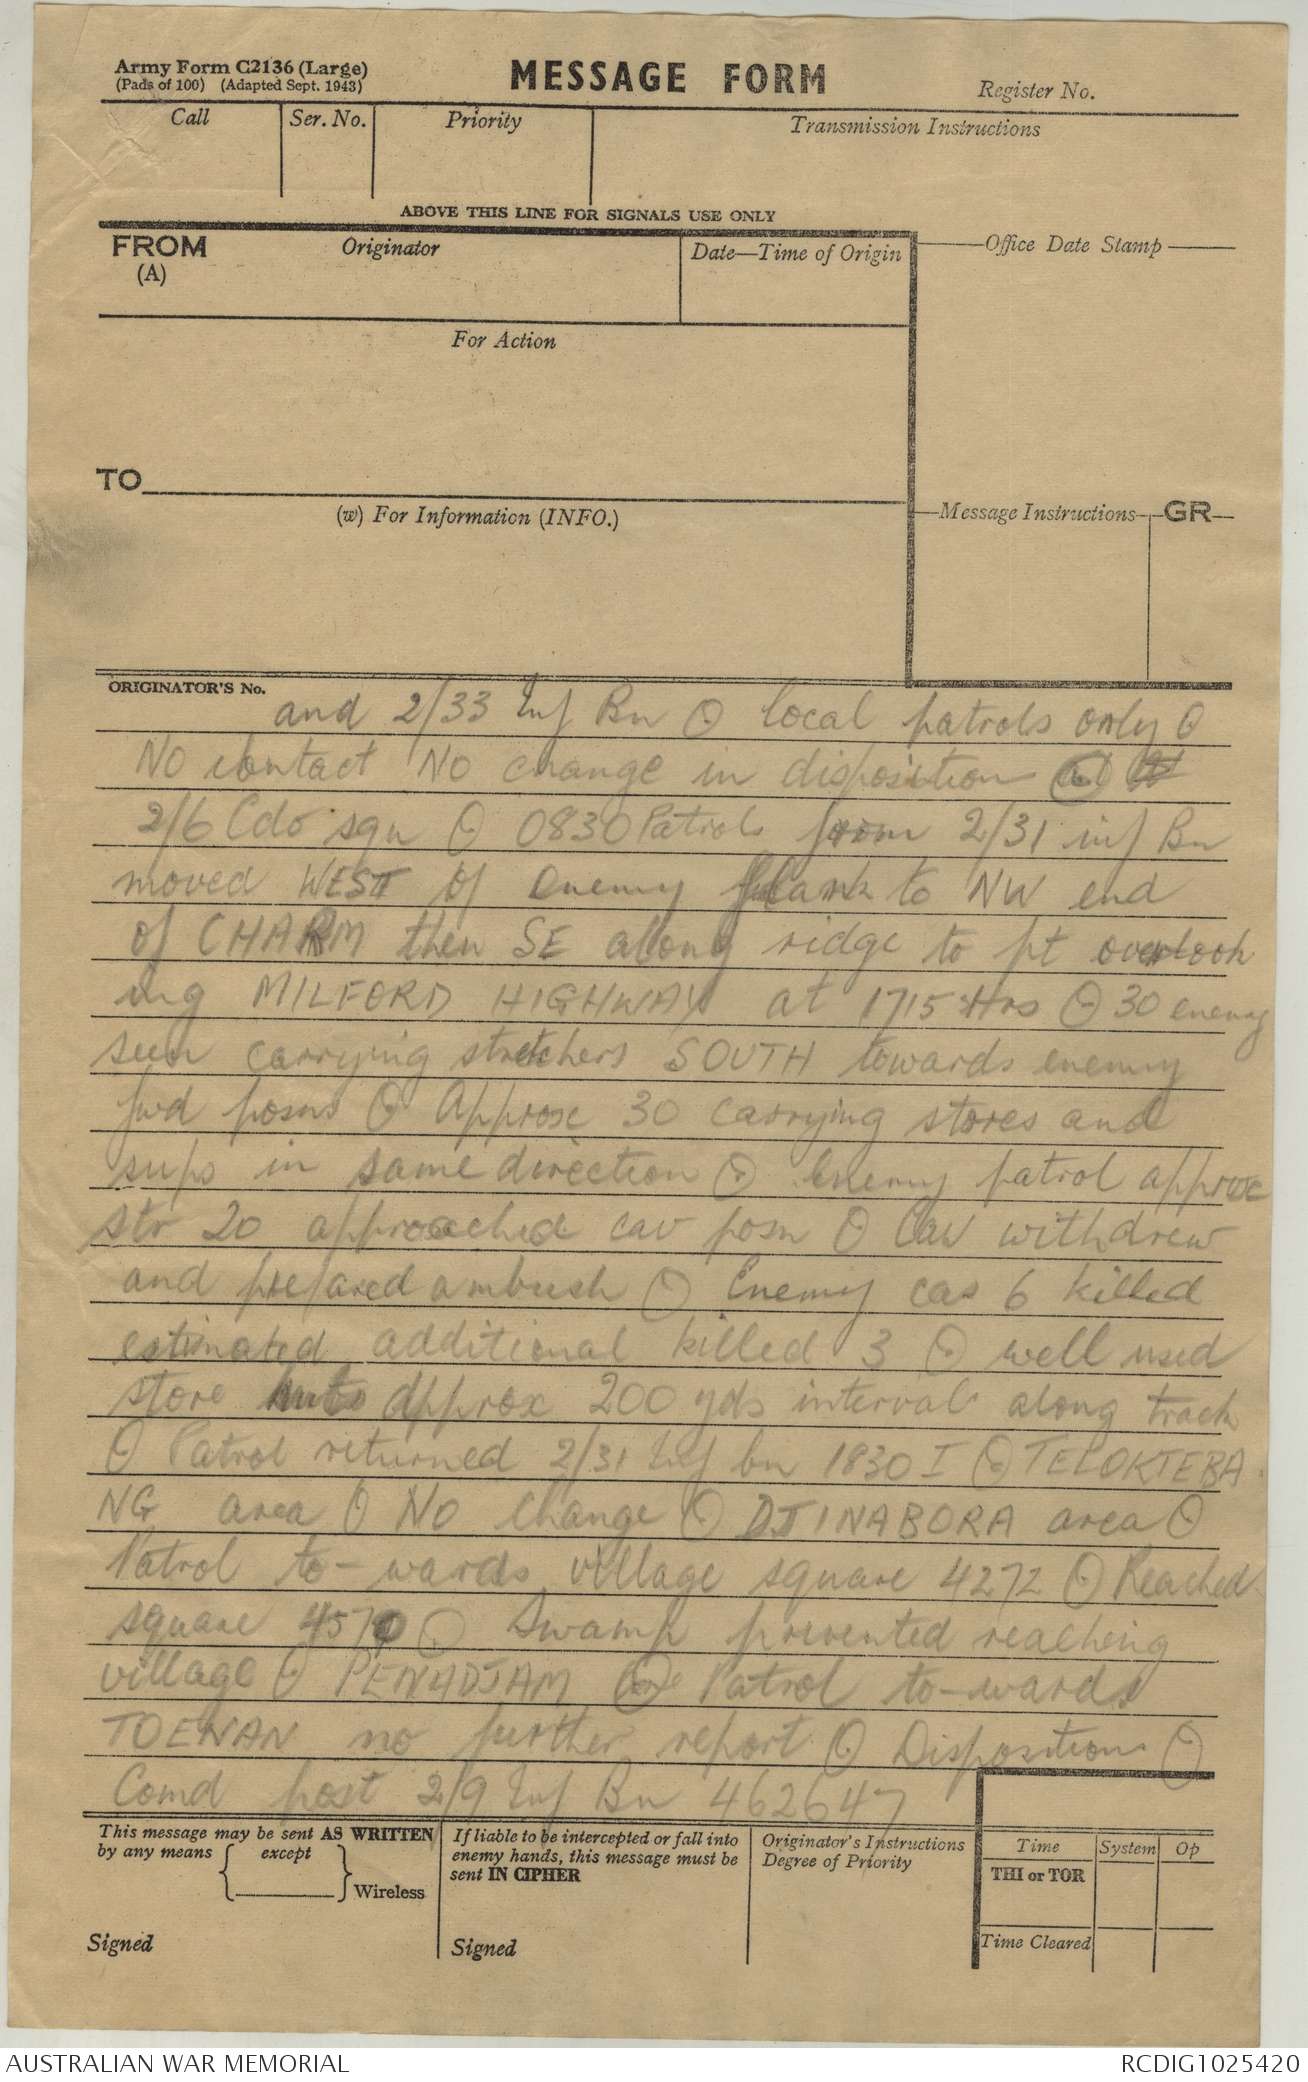 Army Form C2136 (Large)
(Pads of 100) (Adapted Sept. 1943)
MESSAGE FORM
Register No.
Call
Ser. No.
Priority
Transmission Instructions
ABOVE THIS LINE FOR SIGNALS USE ONLY
FROM
(A)
Originator
Date—Time of Origin
Office Date Stamp
For Action
TO
(w) For Information (INFO.)
Message Instructions
GR
ORIGINATOR'S No.
and 2/33 Inf Bn O local patrols only O
No contact No change in disposition
2/6 Cdo sqn O 0830 Patrols from 2/31 inf Bn
moved WEST of enemy flank to NW end
of CHARM then SE along ridge to pt overlook
ing MILFORD HIGHWAY at 1715 Hrs O 30 enemy
seen carrying stretchers SOUTH towards enemy
fwd posns O Approx 30 carrying stores and
sups in same direction O Enemy patrol approx
str 20 approached cav posn O Cav withdrew
and prepared ambush O Enemy cas 6 killed
estimated additional killed 3 O well used
store huts approx 200 yds interval along track
O Patrol returned 2/31 Inf bn 1830 I O TELOKTEBA
NG area O No change O DJINABORA area O
Patrol to-wards village square 4272 O Reached
square 4570 O Swamp prevented reaching
village O PENADJAM O Patrol to-wards
TOENAN no further report O Disposition O
Comd post 2/9 Inf Bn 462647
This message may be sent AS WRITTEN
by any means except
Wireless
Signed
If liable to be intercepted or fall into
enemy hands, this message must be
sent IN CIPHER
Signed
Originator's Instructions
Degree of Priority
Time
System
Op
THI or TOR
Time Cleared
AUSTRALIAN WAR MEMORIAL
RCDIG1025420